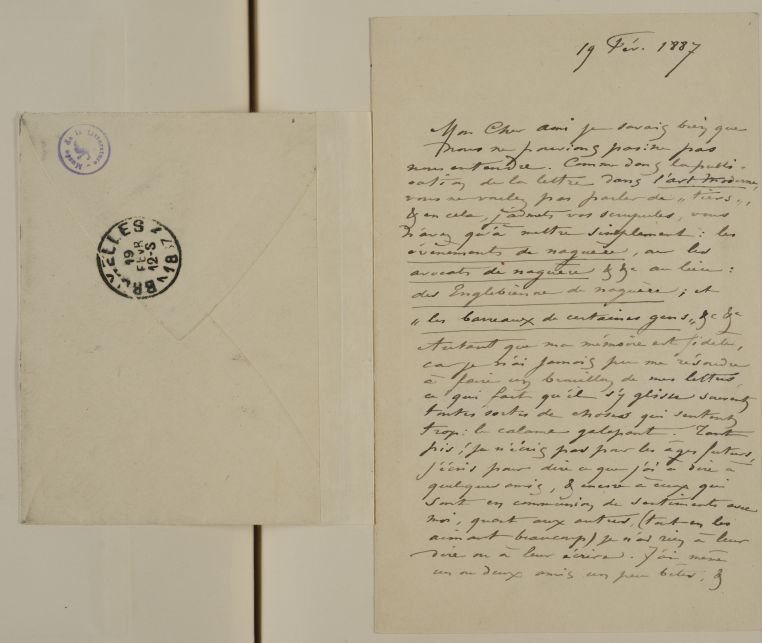 Musée de la Littérature
BRUXELLES 1
19
FEVR
12-S
1887
19 Fév. 1887
Mon Cher ami je savais bien que
nous ne pouvions pas ne pas
nous entendre. Comme dans la publi-
cation de la lettre dans l'art moderne,
vous ne voulez pas parler de „tiers",
& en cela, j'admets vos scrupules, vous
n'avez qu'à mettre simplement : les
évènements de naguère, ou les
avocats de naguère & &c au lieu :
des Englebienne de naguère ; et
„les barreaux de certaines gens" &c &c
Autant que ma mémoire est fidèle,
car je n'ai jamais pu me résoudre
à faire un brouillon de mes lettres,
ce qui fait qu'il s'y glisse souvent
toutes sortes de choses qui sentent
trop : le calame galopant. Tant
pis ! je n'écris pas pour les âges futurs,
j'écris pour dire ce que j'ai à dire à
quelques amis, & encore à ceux qui
sont en communion de sentiments avec
moi, quant aux autres, (tout en les
aimant beaucoup) je n'ai rien à leur
dire ou à leur écrire. J'ai même
un ou deux amis un peu bêtes, &